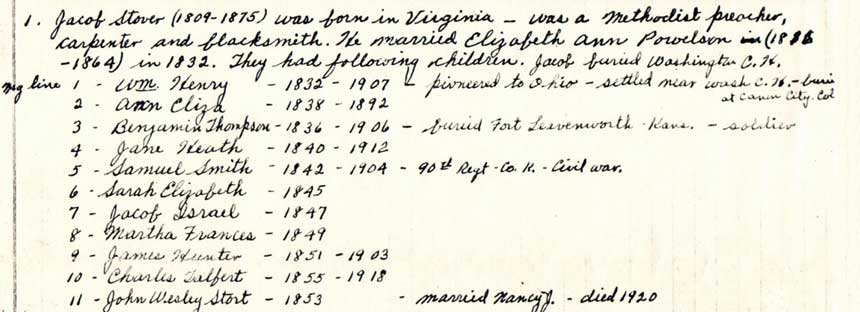 1. Jacob Stover (1809-1875) was born in Virginia – was a Methodist preacher,
carpenter and blacksmith. He married Elizabeth Ann Powelson (1816
-1864) in 1832. They had following children. Jacob buried Washington C.H.
my line 1 - Wm. Henry - 1832 - 1907 - pioneered to Ohio - settled near Wash C.H. - buried
at Canon City. Col
2 - Ann Eliza - 1838 - 1892
3 - Benjamin Thompson - 1836 - 1906 - buried Fort Leavenworth - Kans. - soldier
4 - Jane Heath - 1840 - 1912
5 - Samuel Smith - 1842 - 1904 - 90th Regt - Co. K. - Civil war.
6 - Sarah Elizabeth - 1845
7 - Jacob Israel - 1847
8 - Martha Frances - 1849
9 - James Hunter - 1851 - 1903
10 - Charles Talbert - 1855 - 1918
11 - John Wesley Stort - 1853 - married Nancy J. - died 1920